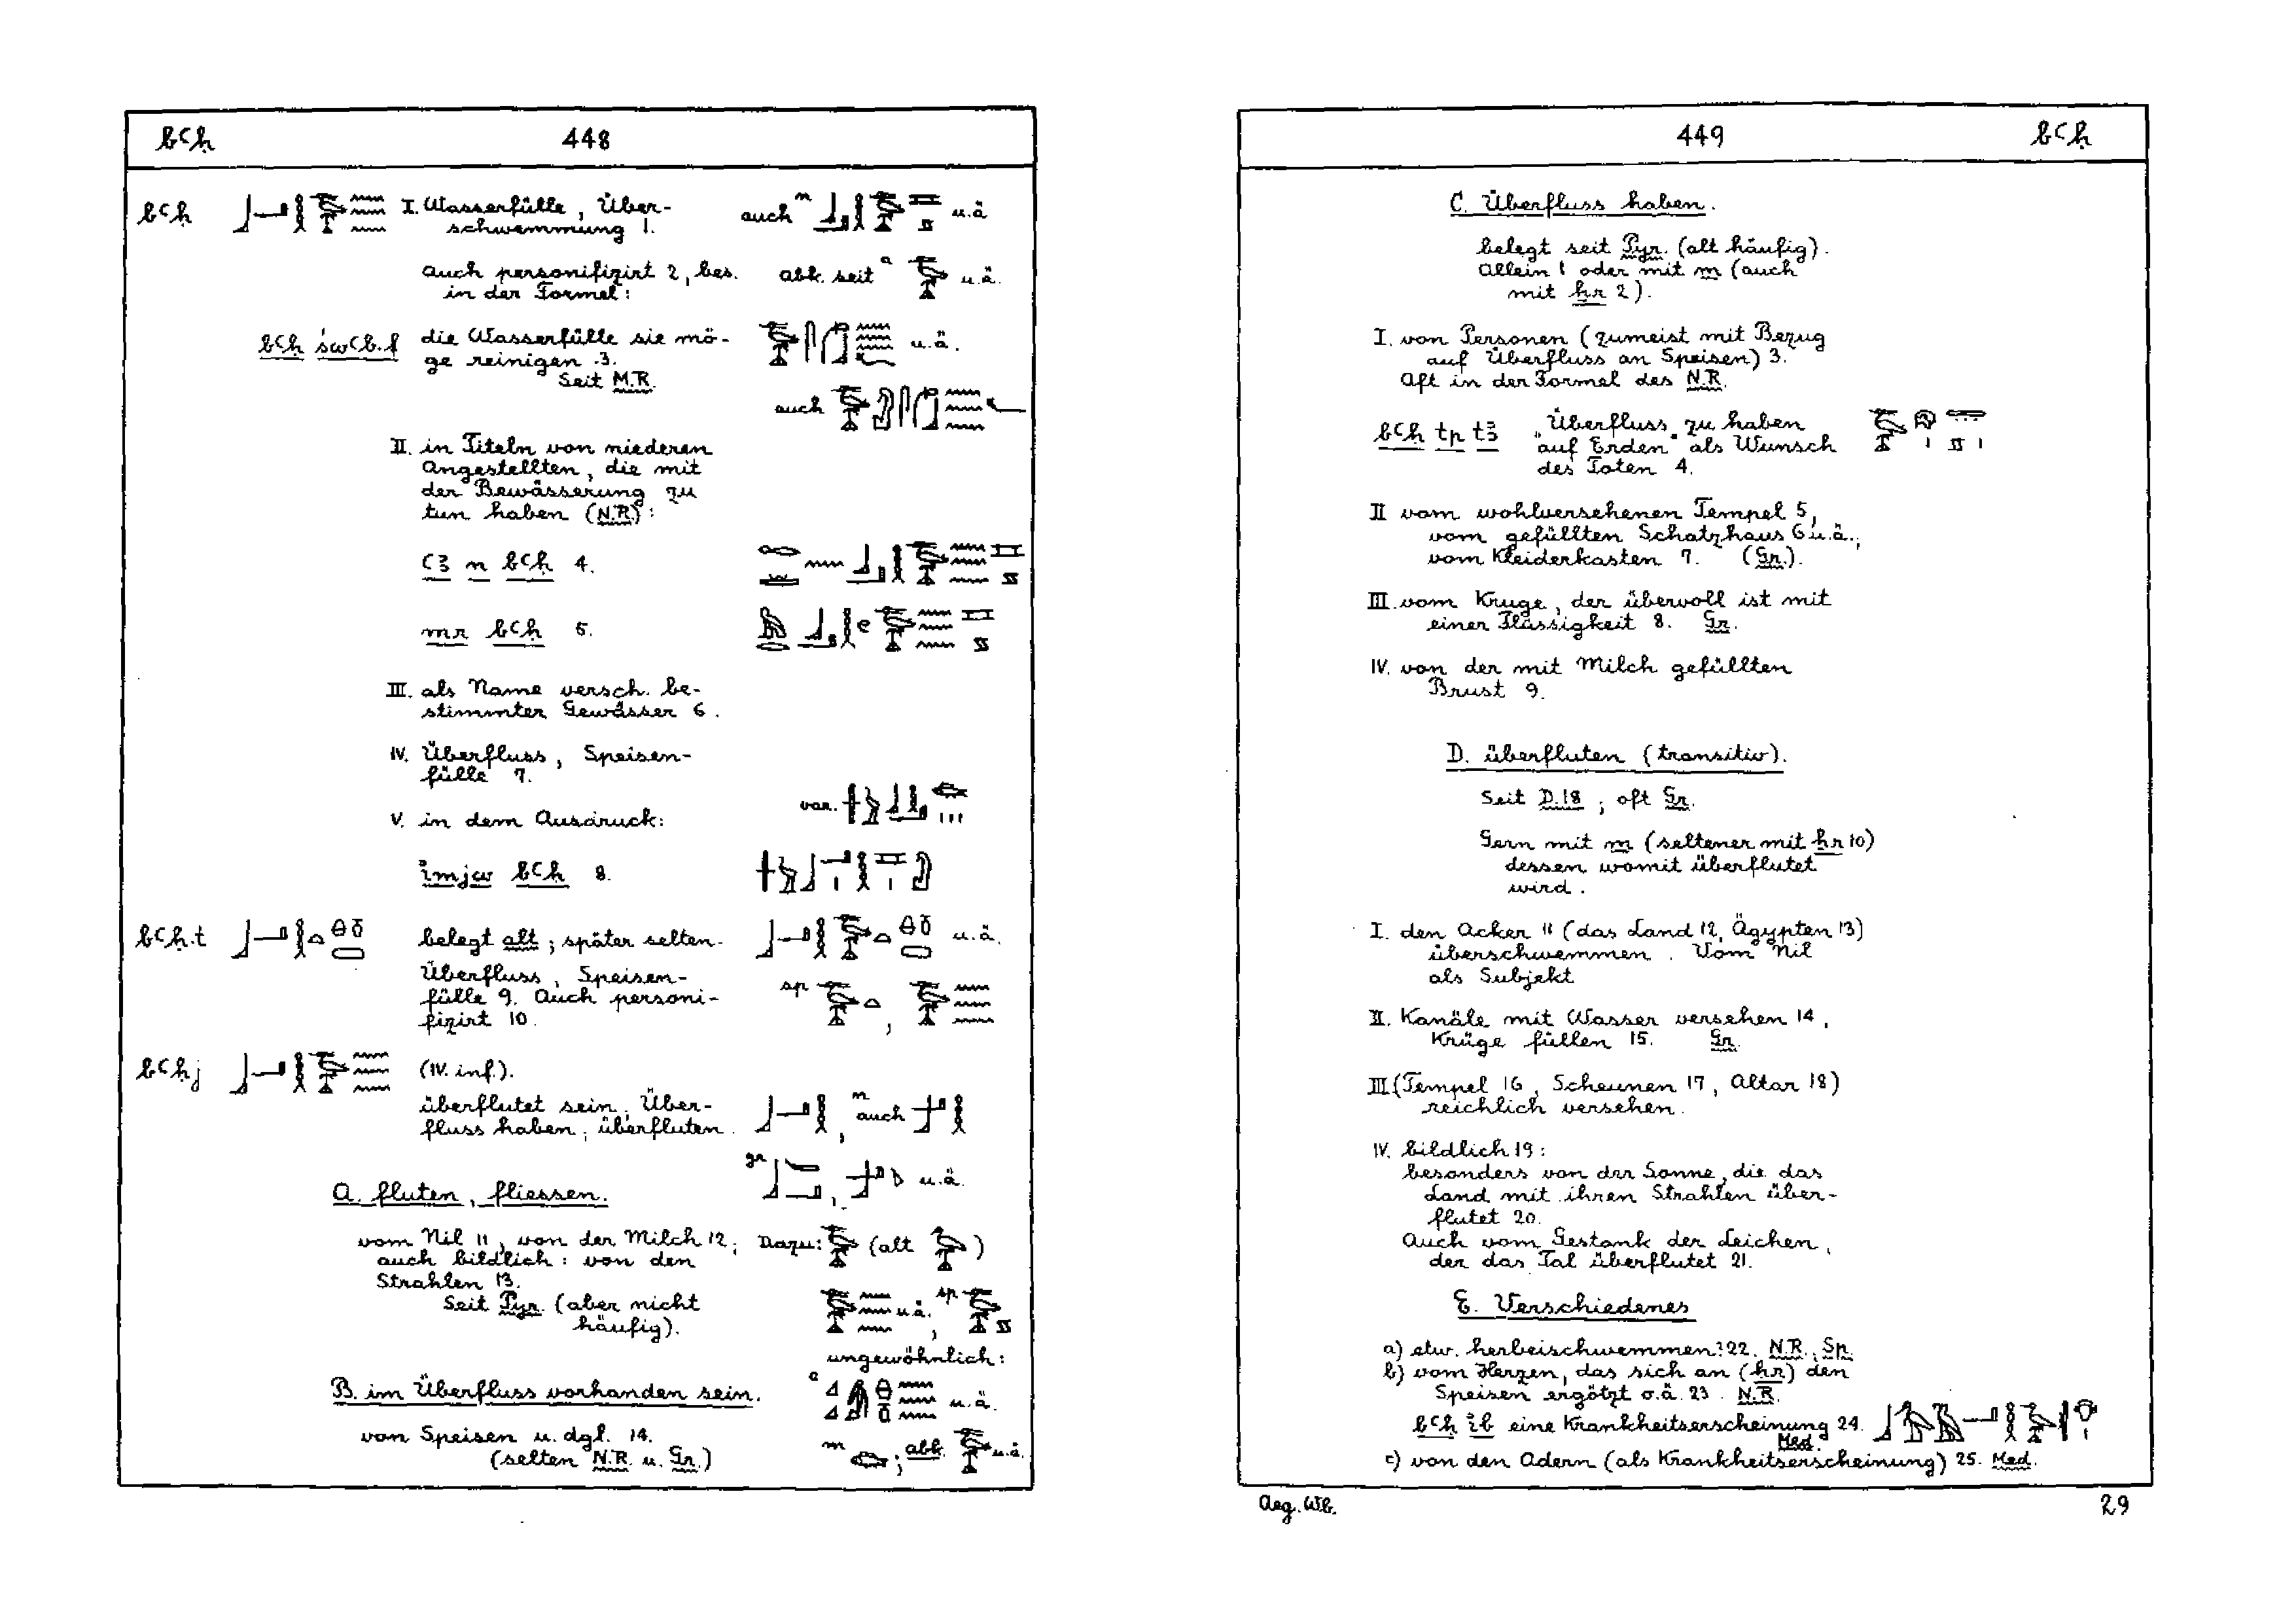 bꜥḥ 448
bꜥḥ I. Wasserfülle, Über- auch m u.ä
schwemmung 1.
auch personifizirt 2, bes. abk. seit a u.ä.
in der Formel:
bꜥḥ śwꜥb.f die Wasserfülle sie mö- u.ä.
ge reinigen 3.
Seit M.R.
auch
II. in Titeln von niederen
Angestellten, die mit
der Bewässerung zu
tun haben (N.R.):
ꜥꜣ n bꜥḥ 4.
mr bꜥḥ 5.
III. als Name versch. be-
stimmter Gewässer 6.
IV. Überfluss, Speisen-
fülle 7.
V. in dem Ausdruck: var.
imjw bꜥḥ 8.
bꜥḥ.t belegt alt; später selten. u.ä.
Überfluss, Speisen-
fülle 9. Auch personi- sp ,
fizirt 10.
bꜥḥj (IV. inf.).
überflutet sein; Über- , m auch
fluss haben; überfluten.
A. fluten, fliessen. gr , u.ä.
vom Nil 11, von der Milch 12; Dazu: (alt )
auch bildlich: von den
Strahlen 13.
Seit Pyr. (aber nicht u.ä. , sp
häufig).
ungewöhnlich:
B. im Überfluss vorhanden sein. a u.ä.
von Speisen u. dgl. 14. m ; abk. u.ä.
(selten N.R. u. Gr.)
449 bꜥḥ
C. Überfluss haben.
belegt seit Pyr. (alt häufig).
Allein 1 oder mit m (auch
mit ḥr 2).
I. von Personen (zumeist mit Bezug
auf Überfluss an Speisen) 3.
Oft in der Formel des N.R.
bꜥḥ tp tꜣ "Überfluss zu haben
auf Erden" als Wunsch
des Toten 4.
II vom wohlversehenen Tempel 5,
vom gefüllten Schatzhaus 6 u.ä.,
vom Kleiderkasten 7. (Gr.).
III. vom Kruge, der übervoll ist mit
einer Flüssigkeit 8. Gr.
IV. von der mit Milch gefüllten
Brust 9.
D. überfluten (transitiv).
Seit D.18; oft Gr.
Gern mit m (seltener mit ḥr 10)
dessen womit überflutet
wird.
I. den Acker 11 (das Land 12, Ägypten 13)
überschwemmen. Vom Nil
als Subjekt
II. Kanäle mit Wasser versehen 14,
Krüge füllen 15. Gr.
III (Tempel 16, Scheunen 17, Altar 18)
reichlich versehen.
IV. bildlich 19:
besonders von der Sonne, die das
Land mit ihren Strahlen über-
flutet 20.
Auch vom Gestank der Leichen,
der das Tal überflutet 21.
E. Verschiedenes
a) etw. herbeischwemmen? 22. N.R., Sp.
b) vom Herzen, das sich an (ḥr) den
Speisen ergötzt o.ä. 23. N.R.
bꜥḥ ib eine Krankheitserscheinung 24.
Med.
c) von den Adern (als Krankheitserscheinung) 25. Med.
Aeg. Wb. 29